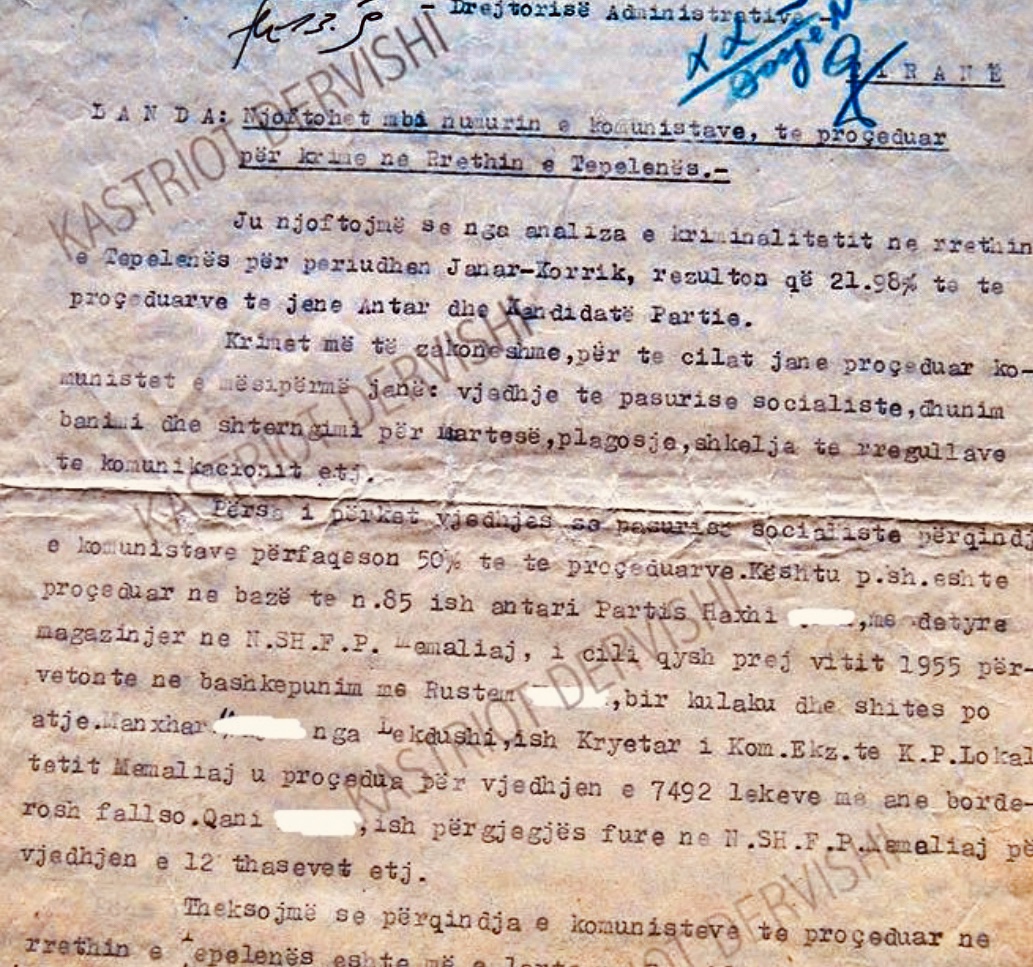 - Drejtorisë Administrative -
T I R A N Ë
L A N D A: Njoftohet mbi numurin e komunistave, te proçeduar
për krime ne Rrethin e Tepelenës.-
Ju njoftojmë se nga analiza e kriminalitetit ne rrethin
e Tepelenës për periudhen Janar-Korrik, rezulton që 21.98% te te
proçeduarve te jene Antar dhe Kandidatë Partie.
Krimet më të zakoneshme,për te cilat jane proçeduar ko-
munistet e mësipërmë janë: vjedhje te pasurise socialiste,dhunim
banimi dhe shterngimi për martesë,plagosje,shkelja te rregullave
te komunikacionit etj.
Përsa i përket vjedhjes se pasurise socialiste përqindj
e komunistave përfaqeson 50% te te proçeduarve.Kështu p.sh.eshte
proçeduar ne bazë te n.85 ish antari Partis Haxhi ,me detyre
magazinjer ne N.SH.F.P. Memaliaj, i cili qysh prej vitit 1955 për-
vetonte ne bashkepunim me Rustem ,bir kulaku dhe shites po
atje.Manxhar nga Lekdushi,ish Kryetar i Kom.Ekz.te K.P.Lokal
tetit Memaliaj u proçedua për vjedhjen e 7492 lekeve me ane borde-
rosh fallso.Qani ,ish përgjegjës fure ne N.SH.F.P.Memaliaj pë
vjedhjen e 12 thasevet etj.
Theksojmë se përqindja e komunisteve te proçeduar ne
rrethin e Tepelenës eshte më e larte
KASTRIOT DERVISHI
KASTRIOT DERVISHI
KASTRIOT DERVISHI